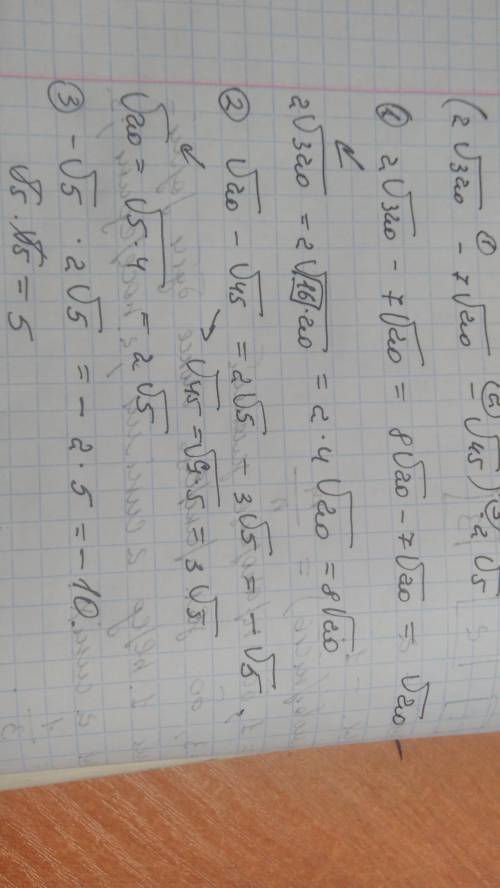 (2√320 ① - 7√20 ② - √45) ③ 2√5
① 2√320 - 7√20 = 8√20 - 7√20 = √20
2√320 = 2√16·20 = 2·4√20 = 8√20
② √20 - √45 = 2√5 - 3√5 = -√5.
√45 = √9·5 = 3√5
√20 = √5·4 = 2√5
③ -√5 · 2√5 = -2·5 = -10.
√5 · √5 = 5